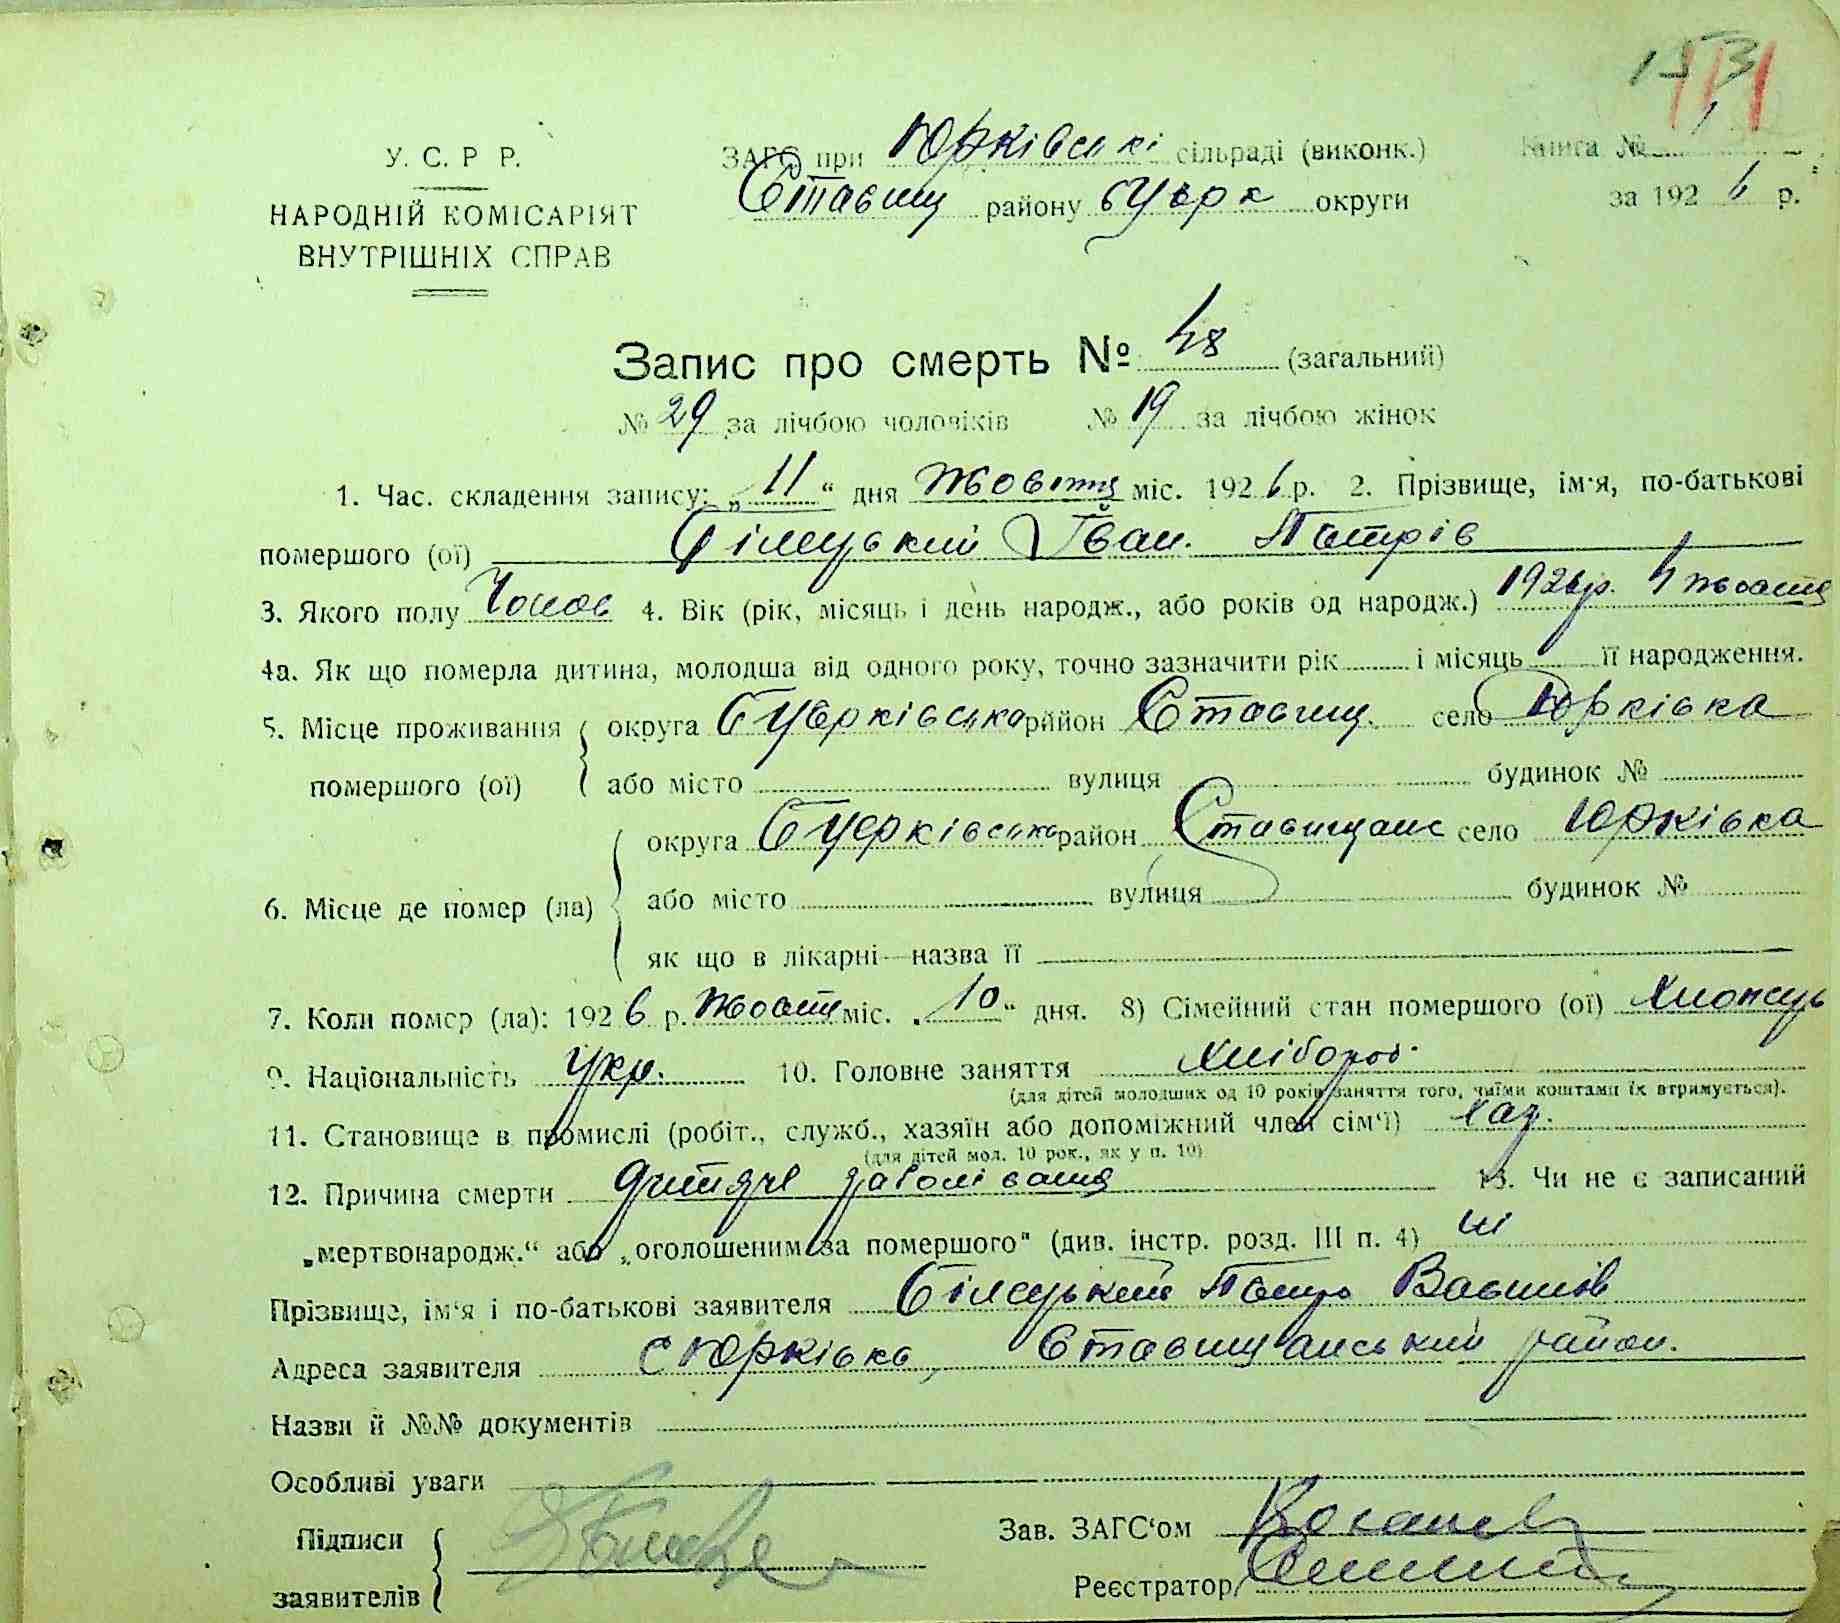 153
У. С. Р Р.
НАРОДНІЙ КОМІСАРІЯТ
ВНУТРІШНІХ СПРАВ
ЗАГС при Юрківські сільраді (виконк.)
Книга № 1
Ставищ району БЦерк округи
за 1926 р.
Запис про смерть № 48 (загальний)
№ 29 за лічбою чоловіків № 19 за лічбою жінок
1. Час. складення запису: „11“ дня Жовтня міс. 1926 р. 2. Прізвище, ім'я, по-батькові
помершого (ої) Білецький Іван Петрів
3. Якого полу Чолов 4. Вік (рік, місяць і день народж., або років од народж.) 1926р. 4 жовтня
4а. Як що померла дитина, молодша від одного року, точно зазначити рік і місяць її народження.
5. Місце проживання помершого (ої)
округа БЦерківська район Ставищ. село Юрківка
або місто вулиця будинок №
6. Місце де помер (ла)
округа БЦерківська район Ставищанс село Юрківка
або місто вулиця будинок №
як що в лікарні—назва її
7. Коли помер (ла): 1926 р. Жовтня міс. „10“ дня. 8) Сімейний стан помершого (ої) Хлопець
9. Національність Укр. 10. Головне заняття Хлібороб.
(для дітей молодших од 10 років заняття того, чиїми коштами їх втримується).
11. Становище в промислі (робіт., служб., хазяїн або допоміжний член сім'ї) хаз.
(для дітей мол. 10 рок., як у п. 10)
12. Причина смерти дитяче заболівання 13. Чи не є записаний
„мертвонародж.“ або „оголошеним за помершого“ (див. інстр. розд. III п. 4) ні
Прізвище, ім'я і по-батькові заявителя Білецький Петро Васильов
Адреса заявителя с Юрківка, Ставищанський район.
Назви й №№ документів
Особливі уваги
Підписи
заявителів
Зав. ЗАГС'ом
Реєстратор